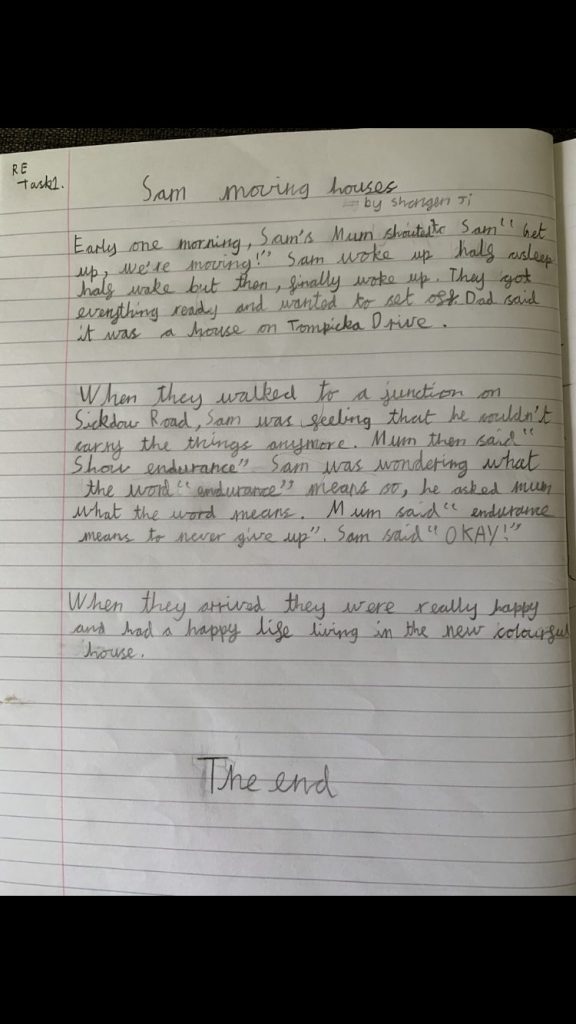 RE
Task1.
Sam moving houses
by Shengen Ji
Early one morning, Sam's Mum shouted to Sam "Get
up, we're moving!" Sam woke up half asleep
half wake but then, finally woke up. They got
everything ready and wanted to set off. Dad said
it was a house on Tompicka Drive.
When they walked to a junction on
Sickdow Road, Sam was feeling that he couldn't
carry the things anymore. Mum then said "
Show endurance" Sam was wondering what
the word "endurance" means so, he asked mum
what the word means. Mum said "endurance
means to never give up". Sam said "OKAY!"
When they arrived they were really happy
and had a happy life living in the new colourful
house.
The end